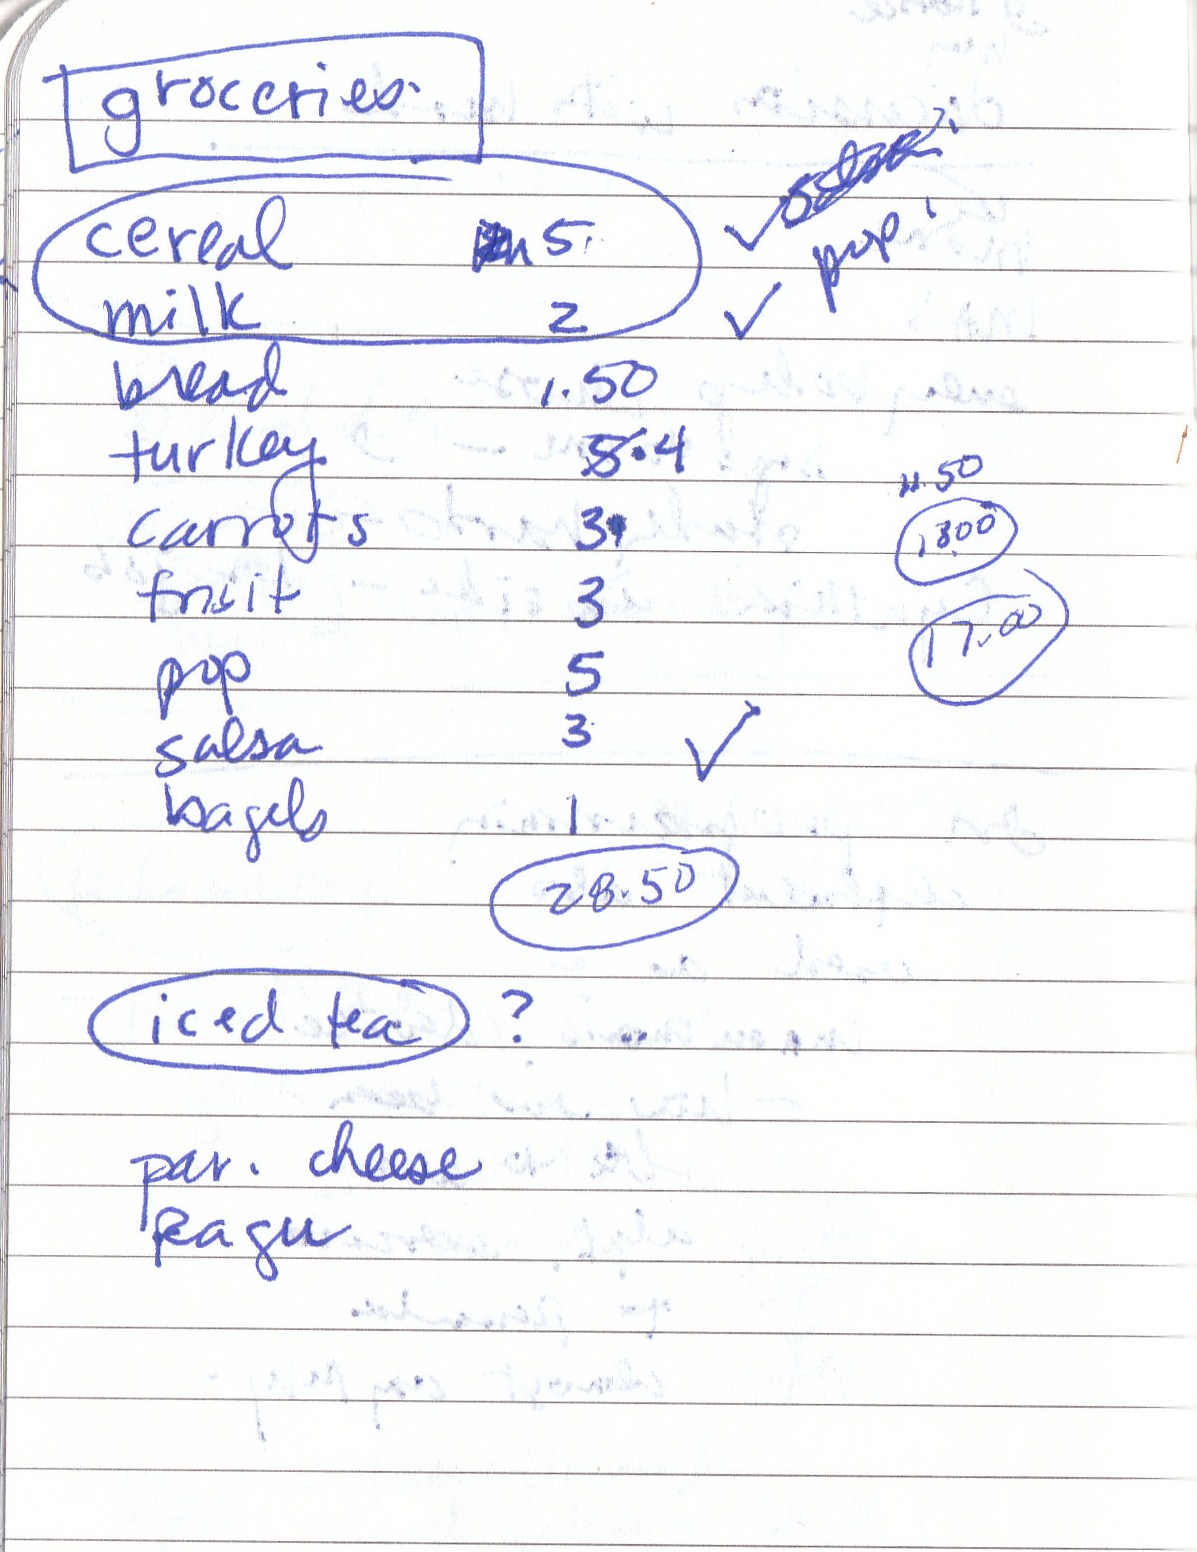 groceries.
cereal 5
milk 2
bread 1.50
turkey 5.4
carrots 3
fruit 3
pop 5
salsa 3
bagels 1
28.50
salsa?
pop!
11.50
18.00
17.00
iced tea ?
par. cheese
ragu